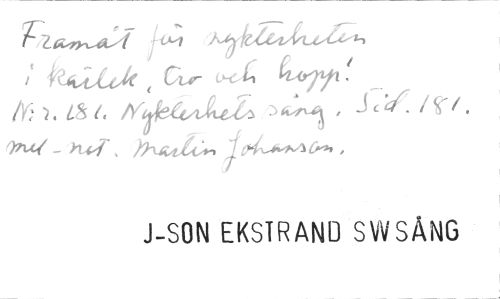 Framåt för nykterheten
i kärlek, tro och hopp!
N:r. 181. Nykterhetssång. Sid. 181.
mel-not. Martin Johanson.
J-SON EKSTRAND SWSÅNG